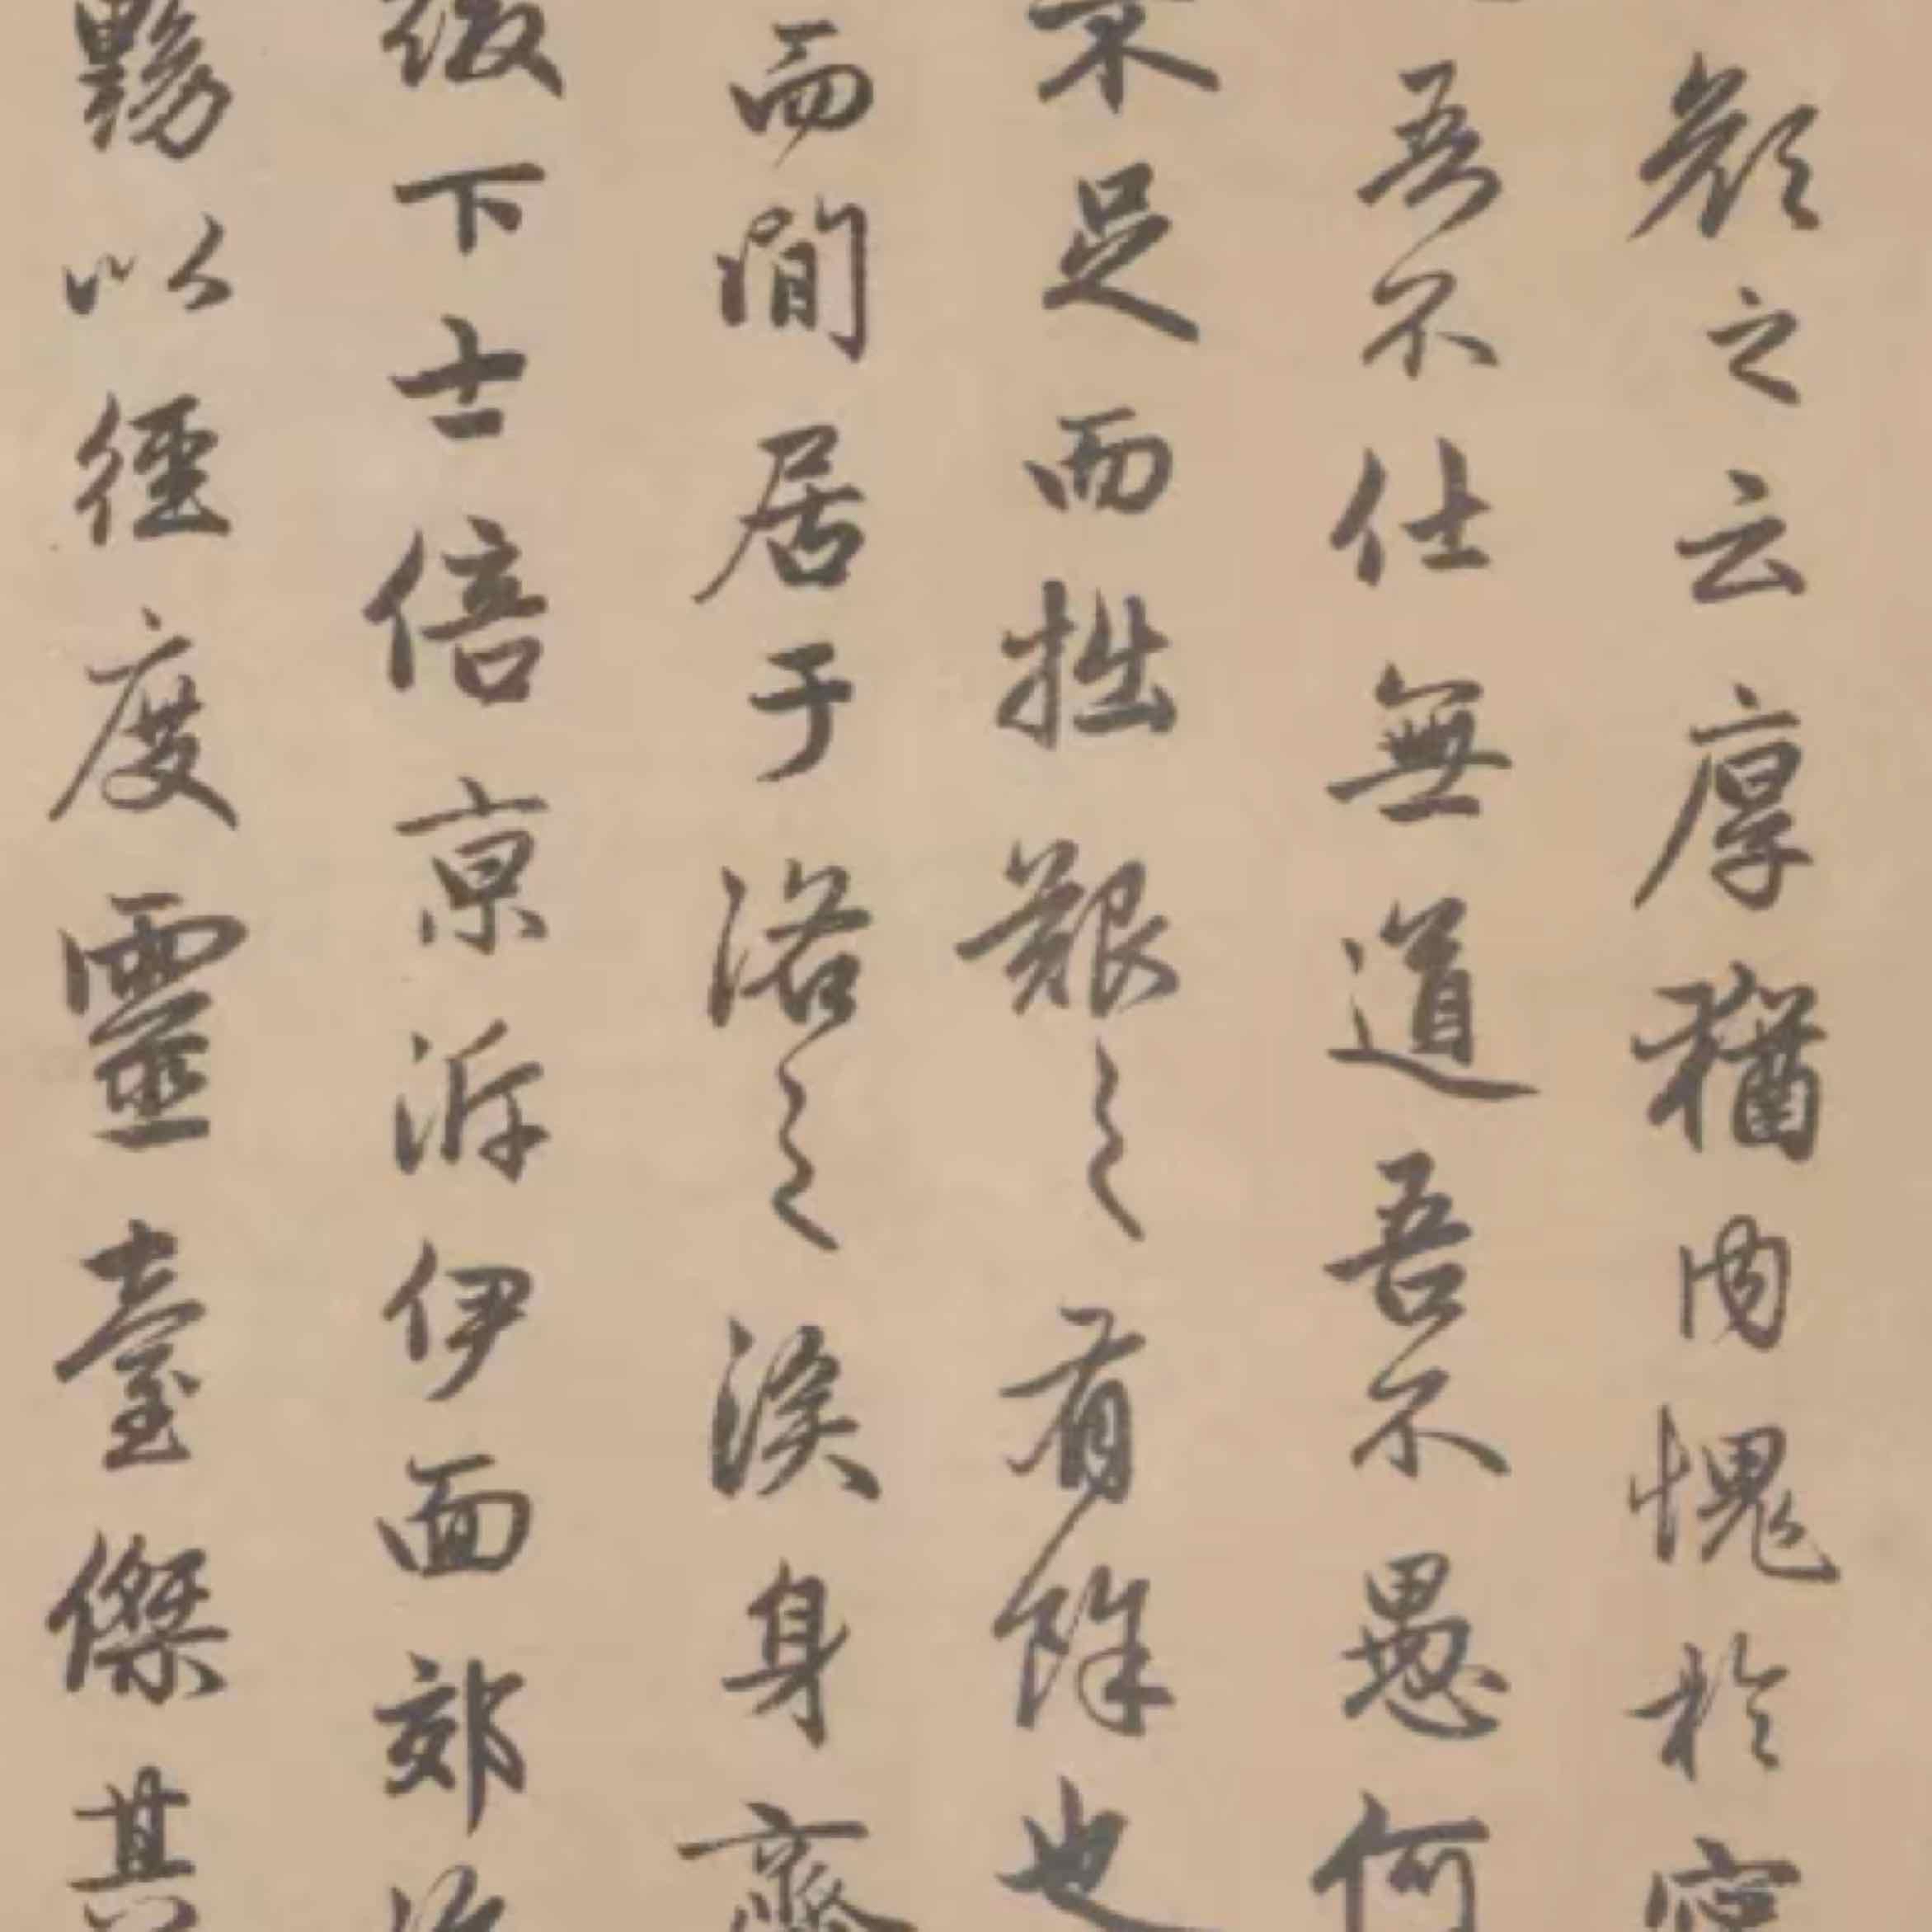 顏之云厚猶内愧於寧
吾不仕無道吾不愚何
足而拙艱之有餘也
而閒居于洛之涘身齊
綴下士倍京泝伊面郊
黝以徑度靈臺傑其